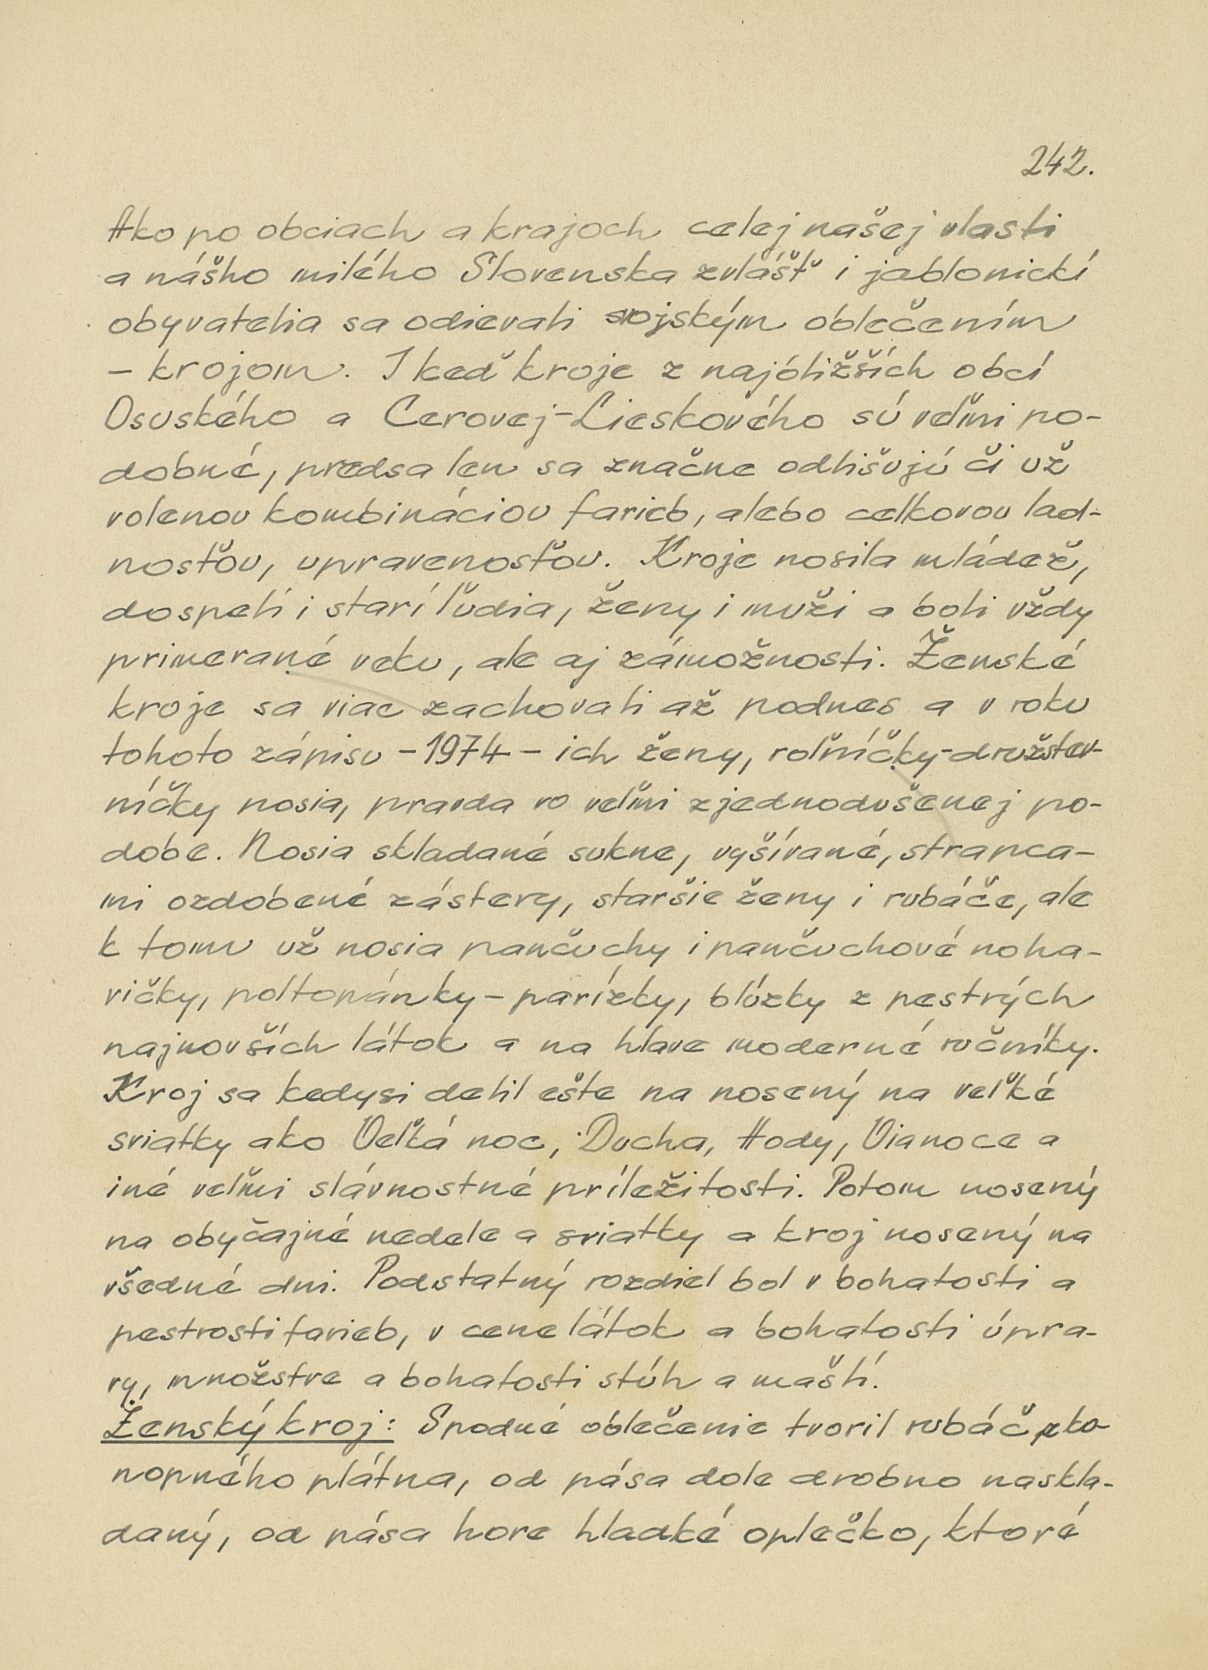 242.
Ako po obciach a krajoch celej našej vlasti
a nášho milého Slovenska zvlášť i jablonickí
obyvatelia sa odievali svojským oblečením
– krojom. I keď kroje z najbližších obcí
Osuského a Cerovej-Lieskového sú veľmi po-
dobné, predsa len sa značne odlišujú či už
volenou kombináciou farieb, alebo celkovou lad-
nosťou, upravenosťou. Kroje nosila mládež,
dospelí i starí ľudia, ženy i muži a boli vždy
primerané veku, ale aj zámožnosti. Ženské
kroje sa viac zachovali až podnes a v roku
tohoto zápisu – 1974 – ich ženy, roľníčky-družstev-
níčky nosia, pravda vo veľmi zjednodušenej po-
dobe. Nosia skladané sukne, vyšívané, strapca-
mi ozdobené zástery, staršie ženy i rubáče, ale
k tomu už nosia pančuchy i pančuchové noha-
vičky, poltopánky – parízky, blúzky z pestrých
najnovších látok a na hlave moderné ručníky.
Kroj sa kedysi delil ešte na nosený na veľké
sviatky ako Veľká noc, Ducha, Hody, Vianoce a
iné veľmi slávnostné príležitosti. Potom nosený
na obyčajné nedele a sviatky a kroj nosený na
všedné dni. Podstatný rozdiel bol v bohatosti a
pestrosti farieb, v cene látok a bohatosti úpra-
vy, množstve a bohatosti stúh a mašlí.
Ženský kroj: Spodné oblečenie tvoril rubáč z ko-
nopného plátna, od pása dole drobno naskla-
daný, od pása hore hladké oplečko, ktoré